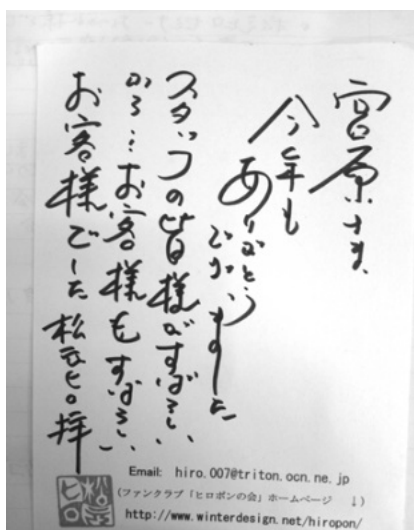 宮原さま、
今年も
ありがとう
ございました
スタッフの皆様がすばらしい、
から…お客様もすばらしい
お客様でした 松元ヒロ 拝
松元
ヒロ
Email: hiro.007@triton.ocn.ne.jp
(ファンクラブ「ヒロポンの会」ホームページ ↓)
http://www.winterdesign.net/hiropon/